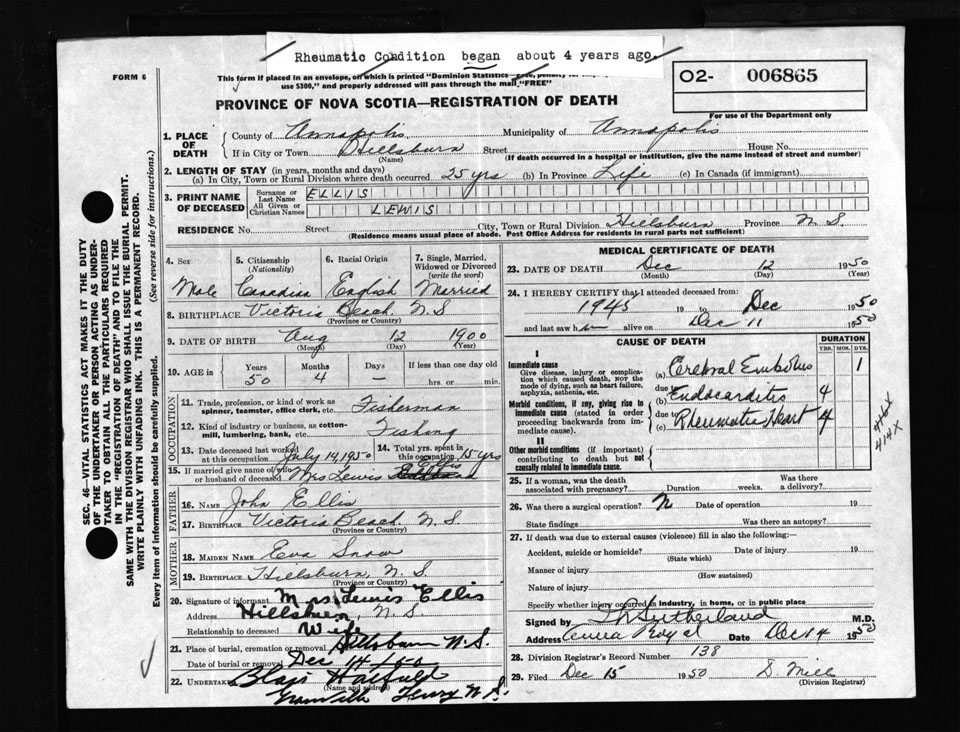 Rheumatic Condition began about 4 years ago.
FORM 6
This form if placed in an envelope, on which is printed "Dominion Statistics—Free, penalty for
use $300," and properly addressed will pass through the mail "FREE"
O2- 006865
For use of the Department only
PROVINCE OF NOVA SCOTIA—REGISTRATION OF DEATH
SEC. 46—VITAL STATISTICS ACT MAKES IT THE DUTY
OF THE UNDERTAKER OR PERSON ACTING AS UNDER-
TAKER TO OBTAIN ALL THE PARTICULARS REQUIRED
IN THE "REGISTRATION OF DEATH" AND TO FILE THE
SAME WITH THE DIVISION REGISTRAR WHO SHALL ISSUE THE BURIAL PERMIT.
WRITE PLAINLY WITH UNFADING INK. THIS IS A PERMANENT RECORD.
Every item of information should be carefully supplied. (See reverse side for instructions.)
1. PLACE OF DEATH
County of Annapolis. Municipality of Annapolis
If in City or Town Hillsburn Street House No.
(Name) (If death occurred in a hospital or institution, give the name instead of street and number)
2. LENGTH OF STAY (in years, months and days)
(a) In City, Town or Rural Division where death occurred 25 yrs (b) In Province Life (c) In Canada (if immigrant)
3. PRINT NAME OF DECEASED
Surname or Last Name ELLIS
All Given or Christian Names LEWIS
RESIDENCE No. Street City, Town or Rural Division Hillsburn Province N.S.
(Residence means usual place of abode. Post Office Address for residents in rural parts not sufficient)
4. Sex 5. Citizenship (Nationality) 6. Racial Origin 7. Single, Married, Widowed or Divorced (write the word)
Male Canadian English Married
8. BIRTHPLACE Victoria Beach, N.S
(Province or Country)
9. DATE OF BIRTH Aug 12 1900
(Month) (Day) (Year)
10. AGE in Years Months Days If less than one day old
50 4 — hrs. or min.
OCCUPATION
11. Trade, profession, or kind of work as
spinner, teamster, office clerk, etc. Fisherman
12. Kind of industry or business, as cotton-
mill, lumbering, bank, etc. Fishing
13. Date deceased last worked at this occupation July 14, 1950 14. Total yrs. spent in this occupation 15 yrs
15. If married give name of wife
or husband of deceased Mrs Lewis Ellis
FATHER
16. Name John Ellis
17. Birthplace Victoria Beach, N.S.
(Province or Country)
MOTHER
18. MAIDEN NAME Eva Snow
19. BIRTHPLACE Hillsburn, N.S.
(Province or Country)
20. Signature of informant Mrs Lewis Ellis
Address Hillsburn N.S.
Relationship to deceased Wife
21. Place of burial, cremation or removal Hillsburn N.S.
Date of burial or removal Dec 14/50
22. Undertaker
(Name and address)
Granville Ferry N.S.
MEDICAL CERTIFICATE OF DEATH
23. DATE OF DEATH Dec 12 1950
(Month) (Day) (Year)
24. I HEREBY CERTIFY that I attended deceased from:
1945 19 to Dec 1950
and last saw him alive on Dec 11 1950
CAUSE OF DEATH
DURATION
YRS. MOS. DYS.
I
Immediate cause
Give disease, injury or complica-
tion which caused death, NOT the
mode of dying, such as heart failure,
asphyxia, asthenia, etc.
(a) Cerebral Embolus 1
due to
(b) Endocarditis 4
Morbid conditions, if any, giving rise to
immediate cause (stated in order
proceeding backwards from im-
mediate cause).
due to
(c) Rheumatic Heart 4
416X
414X
II
Other morbid conditions (if important)
contributing to death but not
causally related to immediate cause.
25. If a woman, was the death
associated with pregnancy? Duration weeks. Was there a delivery?
26. Was there a surgical operation? N Date of operation 19
State findings Was there an autopsy?
27. If death was due to external causes (violence) fill in also the following:—
Accident, suicide or homicide? Date of injury 19
(State which)
Manner of injury
(How sustained)
Nature of injury
Specify whether injury occurred in industry, in home, or in public place
Signed by Sutherland M.D.
Address Anna Royal Date Dec 14 1950
28. Division Registrar's Record Number 138
29. Filed Dec 15 1950 S. Mills
(Division Registrar)